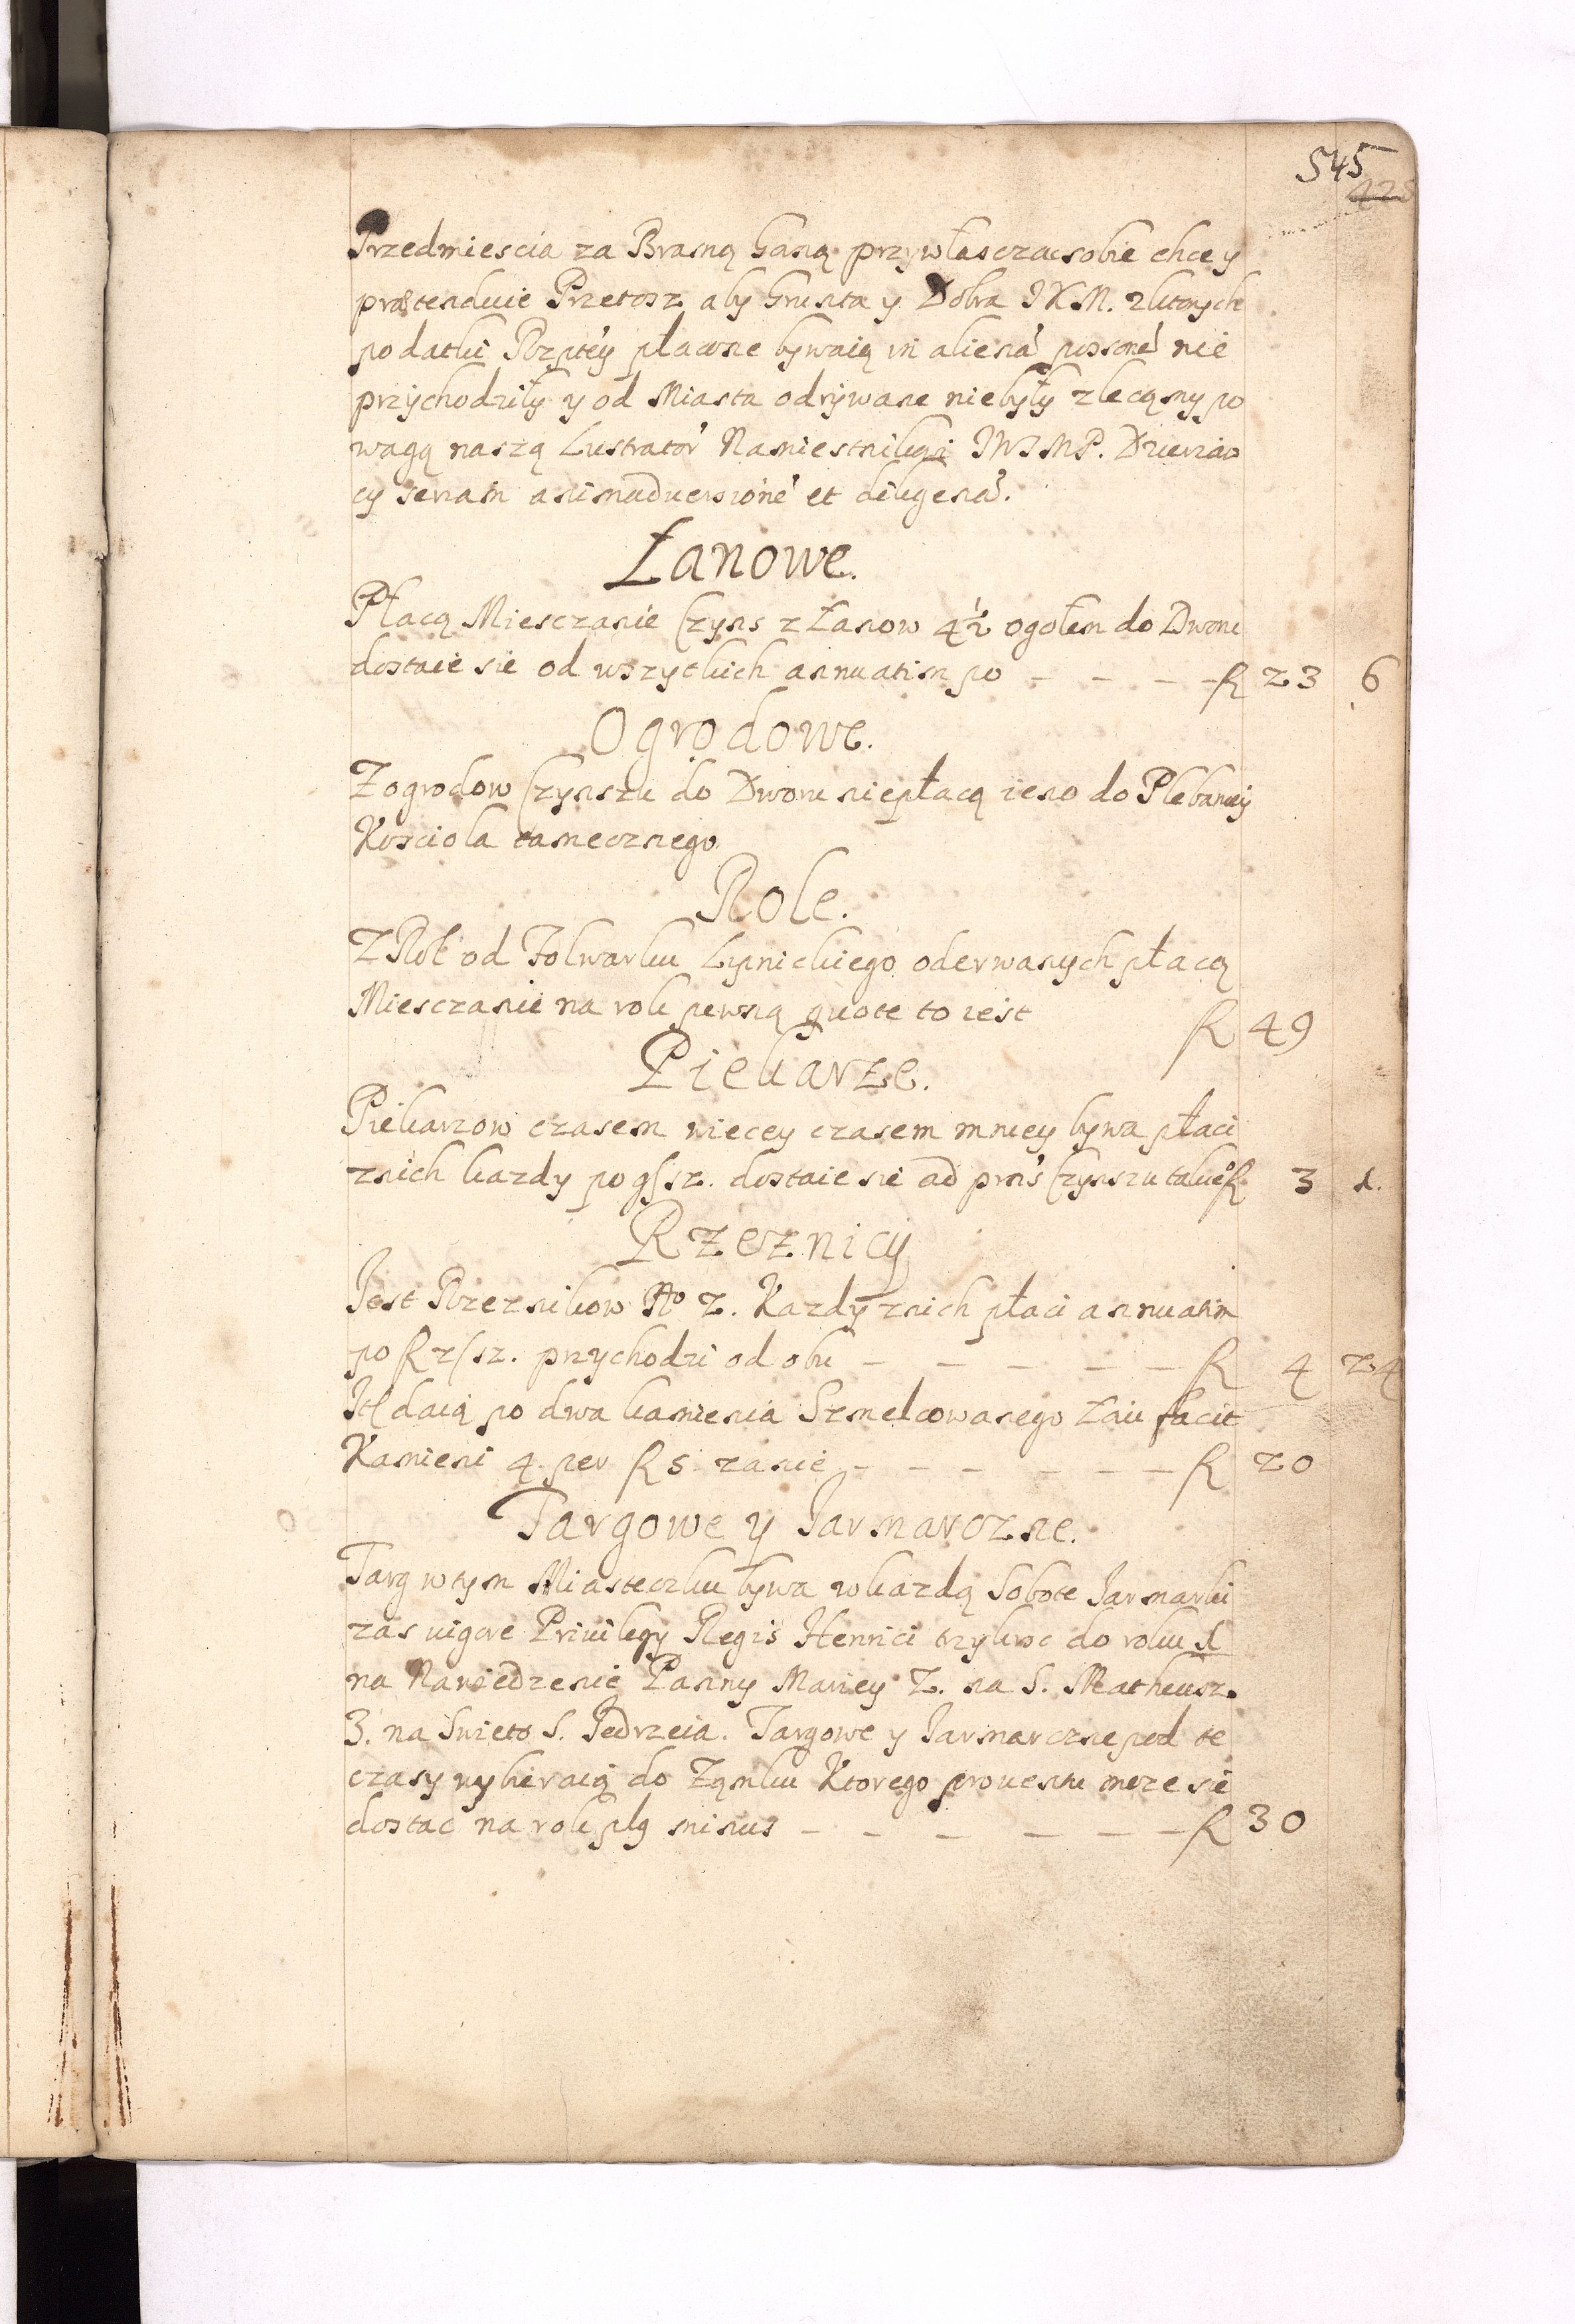 545
428
Przedmiescia za Bramą Ganą przywłasczac sobie chce y
prætenduie Przetosz aby Grunta y Dobra JKM. zktorych
podatki Rzptey płacone bywaią in aliena possone nie
przychodziły y od Miasta odrywane niebyły zlecąmy po
wagą naszą Lustrator Namiestnikowi JWJMP.
cy seriam animaduersione et diligena.
Łanowe.
Płacą Miesczanie Czyns z Łanow 4½ ogołem do Dworu
dostaie sie od wszytkich annuatim po - - - - R 23 6
Ogrodowe.
Z ogrodow Czynszu do Dworu niepłacą ieno do Plebaniey
Kosciola tamecznego
Role.
Z Rol od Folwarku Lipnickiego oderwanych płacą
Miesczanie na rok pewną quote to iest R 49
Piekarze.
Piekarzow czasem wiecey czasem mniey bywa płaci
znich kazdy po g(sz. dostaie sie ad prns Czynszu takieo R 3 1.
Rzeznicy
Jest Rzeznikow No 2. Kazdy znich płaci annuatim
po R 2(sz. przychodzi od obu - - - - - R 4 24
It daią po dwa kamienia Szmelcowanego Łaiu facit
Kamieni 4. per R 5. zanie - - - - - - R 20
Targowe y Jarmarczne.
Targ wtym Miasteczku bywa wkazdą Sobote Jarmarki
zas uigore Priuilegy Regis Henrici trzykroc do roku 1
na Nawiedzenie Panny Mariey 2. na S. Matheusz.
3. na Swieto S. Jedrzeia. Targowe y Jarmarczne pod te
czasy wybieraią do Ząmku Ktorego prouentu moze sie
dostac na rok plg minus - - - - - - R 30